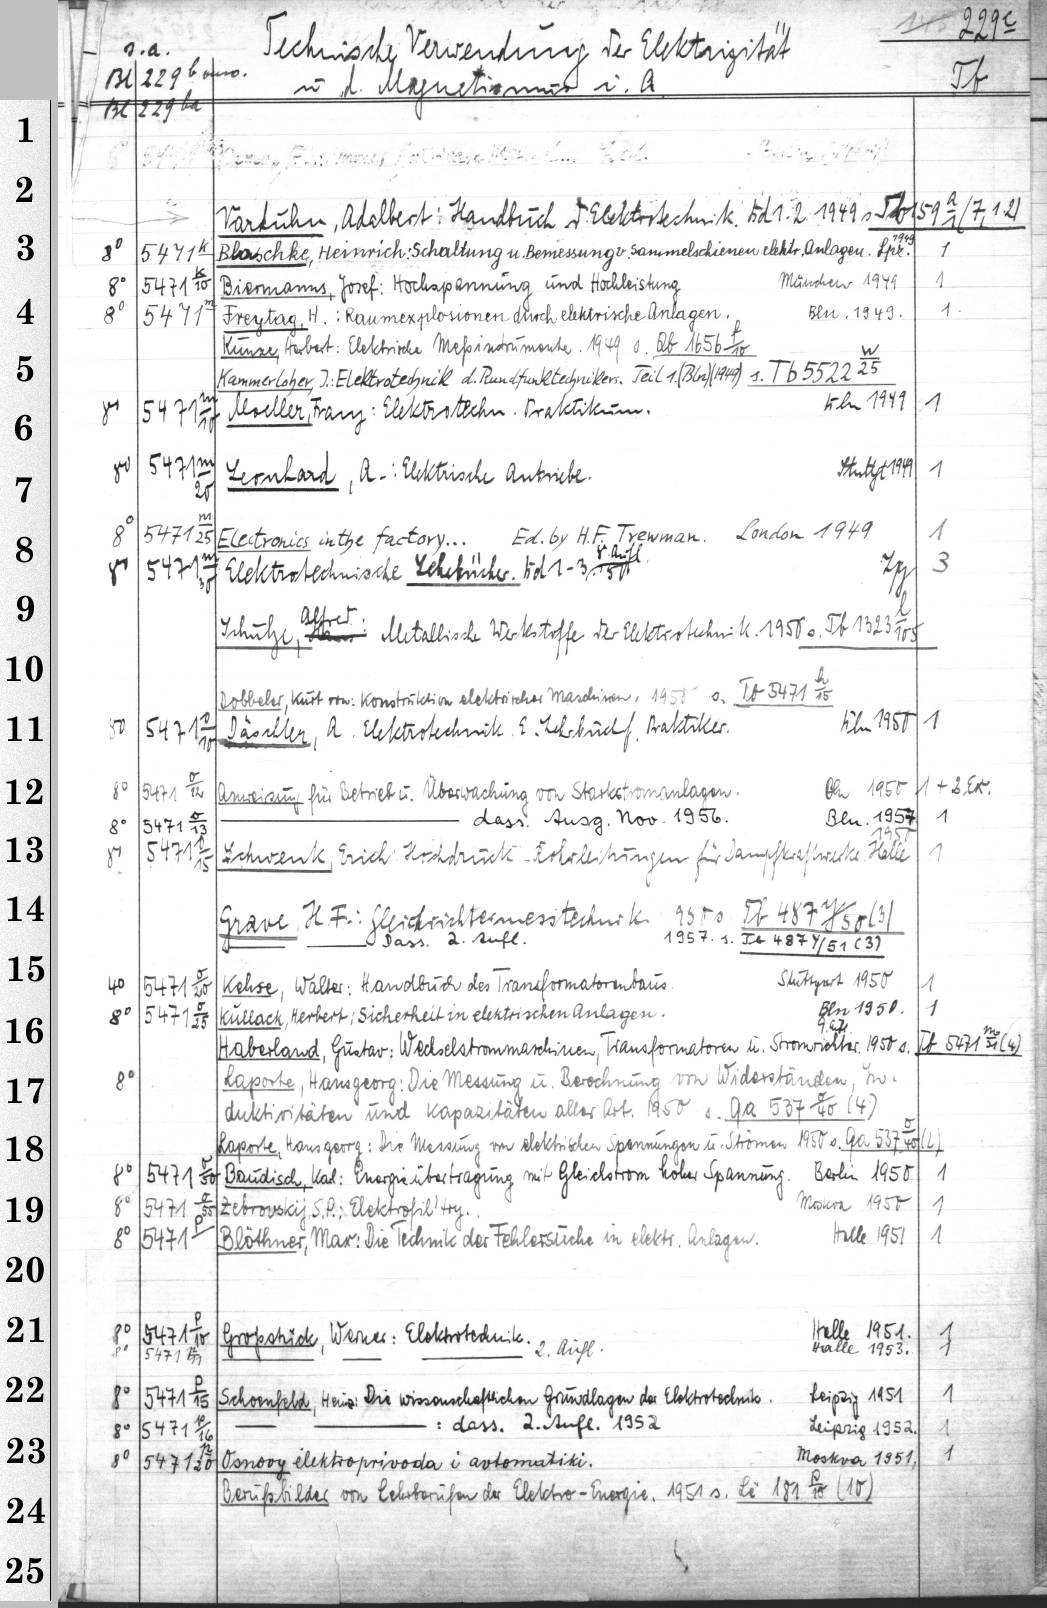 229c
s.a. Technische Verwendung der Elektrizität
Bl 229b
u d. Magnetismus i. A. Tb
Bl 229ba
1
2
Varduhn, Adalbert: Handbuch d. Elektrotechnik. Bd 1.2. 1949 s. (7,1.2)
3 8° 5471 k Blaschke, Heinrich: Schaltung u. Bemessung v. Sammelschienen elektr. Anlagen. Lpz. 1949 1
8° 5471 k/10 Biermanns, Josef: Hochspannung und Hochleistung München 1949 1
4 8° 5471 m Freytag, H.: Raumexplosionen durch elektrische Anlagen. Bln. 1949. 1.
Kunze, Herbert: Elektrische Meßinstrumente. 1949 s. Qb 1656 f/10
5 Kammerloher, J.: Elektrotechnik d. Rundfunktechnikers. Teil 1. (Bln)(1949) s. Tb 5522 w/25
8° 5471 m/10 Moeller, Franz: Elektrotechn. Praktikum. Bln 1949 1
6
8° 5471 m/20 Leonhard, A.: Elektrische Antriebe. Stuttgt 1949 1
7
8° 5471 m/25 Electronics in the factory... Ed. by H.F. Trewman. London 1949 1
8 8° 5471 m/30 Elektrotechnische Lehrbücher. Bd 1-3 8. Aufl. 50 Lpz 3
9
Schulze, Alfred: Metallische Werkstoffe der Elektrotechnik. 1950 s. Tb 1323 l/105
10
Dobbeler, Kurt von: Konstruktion elektrischer Maschinen. 1950 s. Tb 5471 h/15
11 8° 5471 o/10 Däschler, A. Elektrotechnik. E. Lehrbuch f. Praktiker. Bln 1950 1
12 8° 5471 o/12 Anweisung für Betrieb u. Überwachung von Starkstromanlagen. Bln 1950 1 + 2.Ex.
8° 5471 o/13 dass. Ausg. Nov. 1956. Bln. 1957 1
13 8° 5471 o/15 Schwenk, Erich: Hochdruck-Rohrleitungen für Dampfkraftwerke. Halle 1950 1
14
Grave, H.F.: Gleichrichtermesstechnik. 950 s. Tb 487 y/50 (3)
Dass. 2. Aufl. 1957. s. Tb 487 y/51 (3)
15 4° 5471 o/20 Kehse, Walter: Handbuch des Transformatorenbaus. Stuttgart 1950 1
8° 5471 o/25 Kullack, Herbert: Sicherheit in elektrischen Anlagen. Bln 1950. 1
16 Haberland, Gustav: Wechselstrommaschinen, Transformatoren u. Stromrichter. 1950 s. Tb 5471 m/30 (4)
17 8° Laporte, Hansgeorg: Die Messung u. Berechnung von Widerständen, In-
duktivitäten und Kapazitäten aller Art. 1950 s. Qa 537 o/40 (4)
18 Laporte, Hansgeorg: Die Messung von elektrischen Spannungen u. Strömen 1950 s. Qa 537 o/40 (2)
8° 5471 o/50 Baudisch, Karl: Energieübertragung mit Gleichstrom hoher Spannung. Berlin 1950. 1
19 8° 5471 o/55 Žebrovskij, S.P.: Elektrofil'try. Moskva 1950 1
8° 5471 p Blöthner, Max: Die Technik der Fehlersuche in elektr. Anlagen. Halle 1951 1
20
21 8° 5471 p/10 Großstück, Werner: Elektrotechnik. Halle 1951. 1
8° 5471 p/11 2. Aufl. Halle 1953. 1
22 8° 5471 p/15 Schoenfeld, Heinz: Die wissenschaftlichen Grundlagen der Elektrotechnik. Leipzig 1951 1
8° 5471 p/16 : dass. 2. Aufl. 1952 Leipzig 1952. 1
23 8° 5471 p/20 Osnovy elektroprivoda i avtomatiki. Moskva 1951, 1
24 Berufsbilder von Lehrberufen der Elektro-Energie. 1951 s. Lë 181 p/10 (10)
25